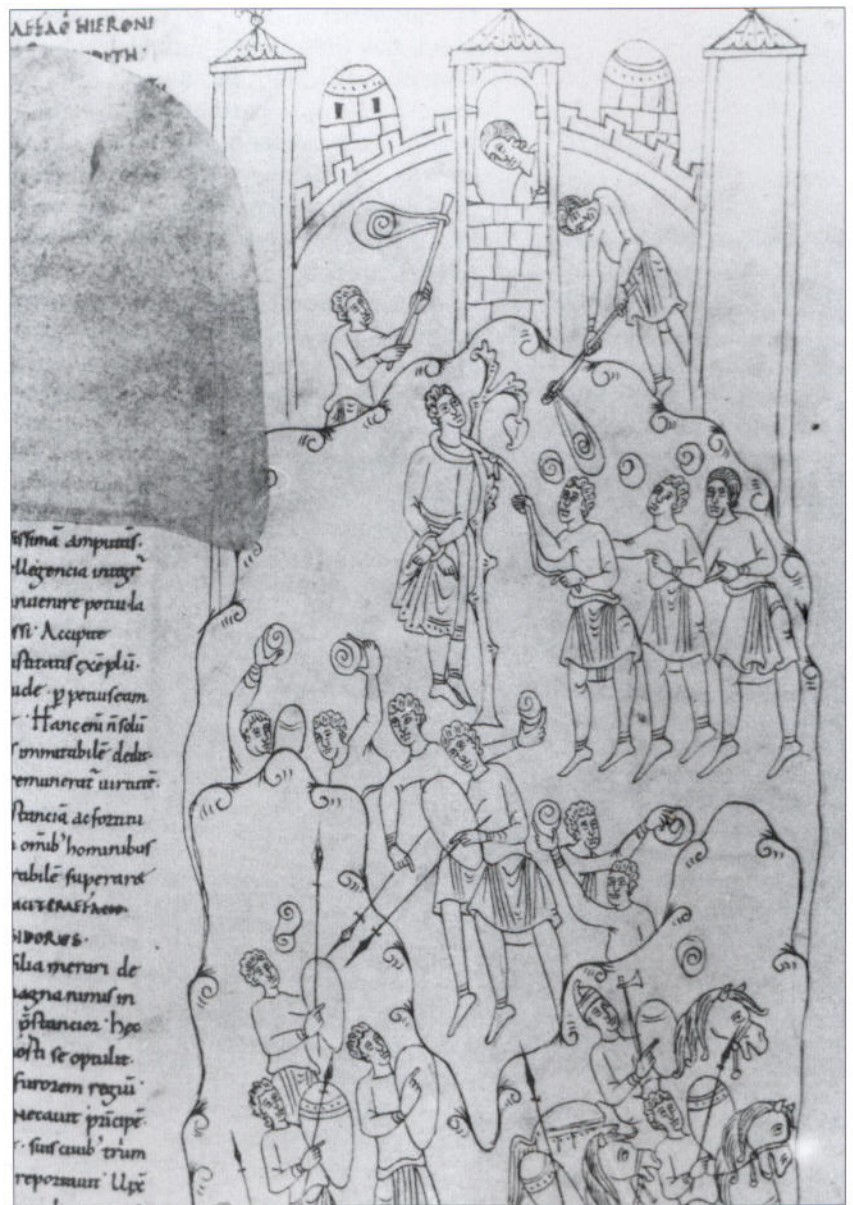 HIERONI
DITH·
issimā amputās·
llegencia integr̄
inuenire potui·la
ssi· Accipite
astitatis exēplū·
ude· ꝑ petuis eam
· Hanc eni n̄ solū
s immitabilē dedit·
remunerat̄ uirtutē·
stanciā ac fortitu
omib' hominibus
rabilē superare
SIDORUS·
filia merari de
magna nimis in
p̄stancior· hęc
hosti se optulit·
furorem regiū·
Necauit principē·
· suis ciuib' trium
reportauit